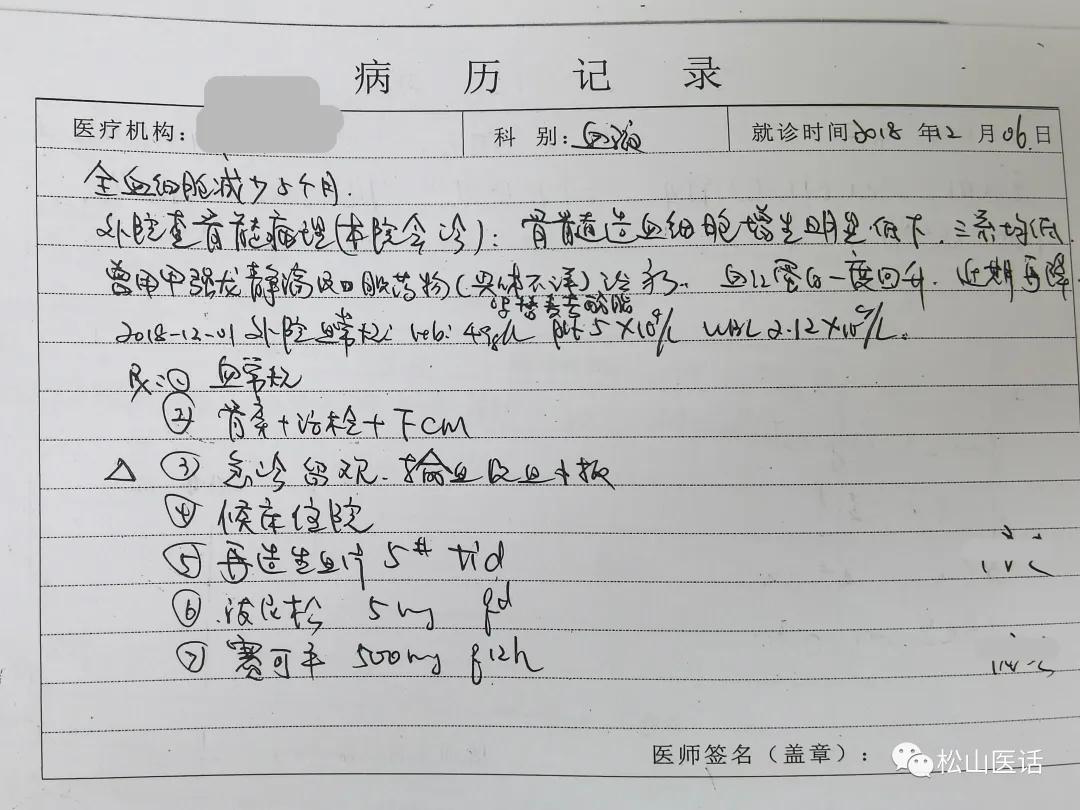 病 历 记 录
医疗机构: 科 别: 血液 就诊时间 2018 年 12 月 06 日
全血细胞减少5个月.
外院查骨髓病理(本院会诊): 骨髓造血细胞增生明显低下. 三系均低.
曾用甲强龙静滴及口服药物(具体不详)治疗. 血红蛋白一度回升. 近期再降
吗替麦考酚酯
2018-12-01 外院血常规: Hb: 49g/L plt 5×10⁹/L WBC 2.12×10⁹/L.
Rx: ① 血常规
② 骨穿+活检+FCM
△ ③ 急诊留观. 输血及血小板
④ 候床住院
⑤ 再造生血片 5# tid
⑥ 泼尼松 5mg qd
⑦ 赛可平 500mg q12h
医师签名(盖章):
松山医话